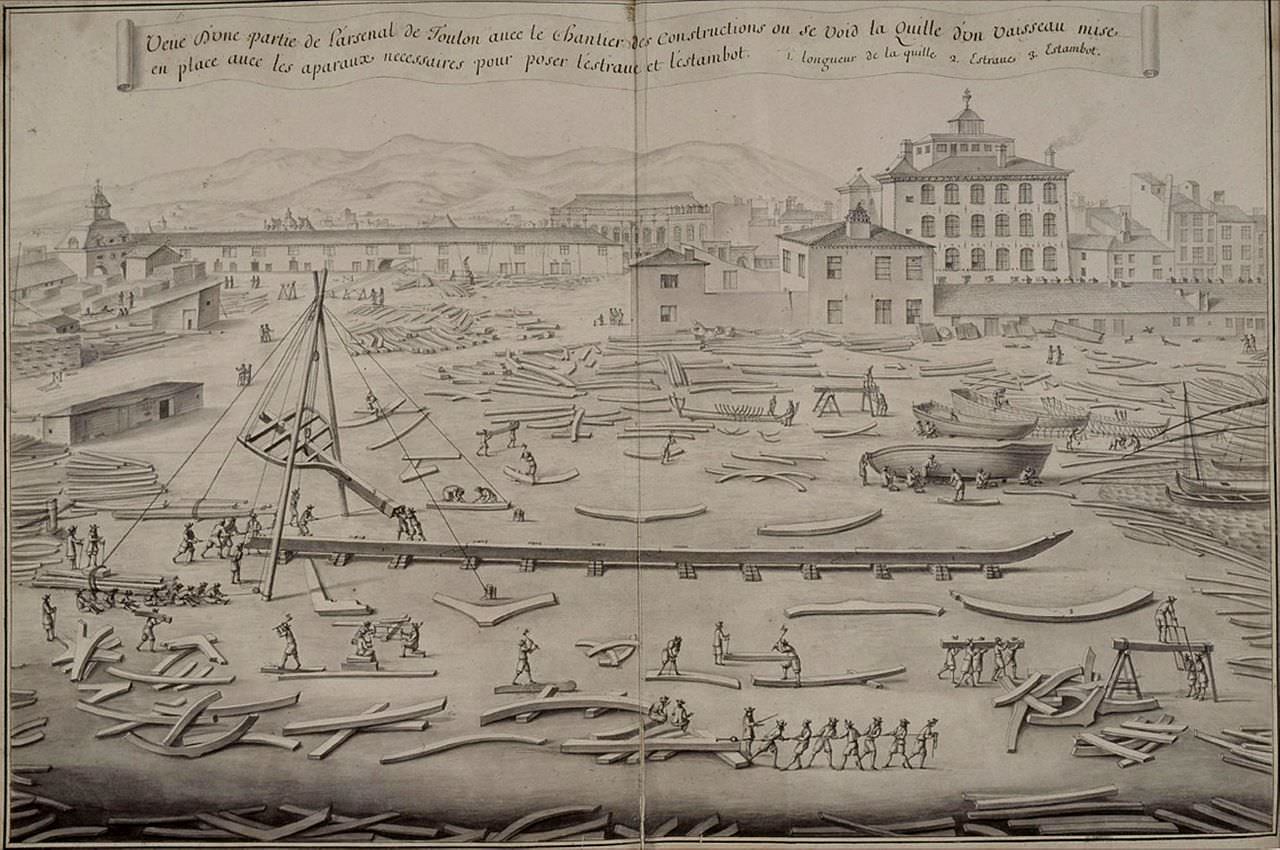 Veuë D'une partie de L'arsenal de Toulon avec le Chantier des Constructions ou se void la Quille d'un vaisseau mise
en place avec les aparaux necessaires pour poser l'estrave et l'estambot. 1. longueur de la quille 2. Estrave 3. Estambot.